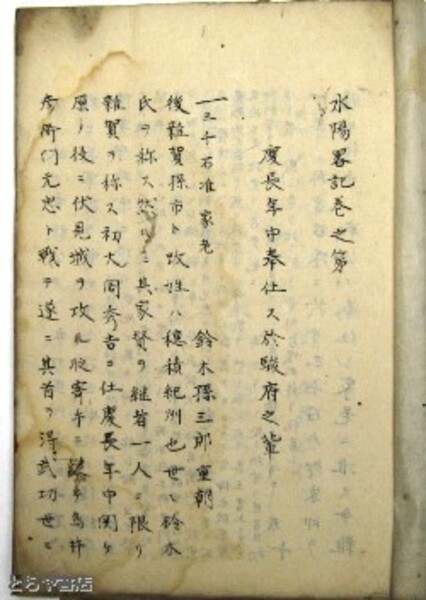 水陽畧記巻之第
慶長年中奉仕ス於駿府之輩
一三千石准家老 鈴木孫三郎重朝
後雜賀孫市ト改姓ハ穂積紀州也世々鈴木
氏ヲ称ス然ルニ其家督ヲ継者一人ニ限リ
雜賀ヲ称ス初大閤秀吉ニ仕慶長年中関ケ
原ノ後ニ伏見城ヲ攻ル寄手ニ鳥井
彦衛門元忠ト戦テ遂ニ其首ヲ得武功世ニ
とらや書店